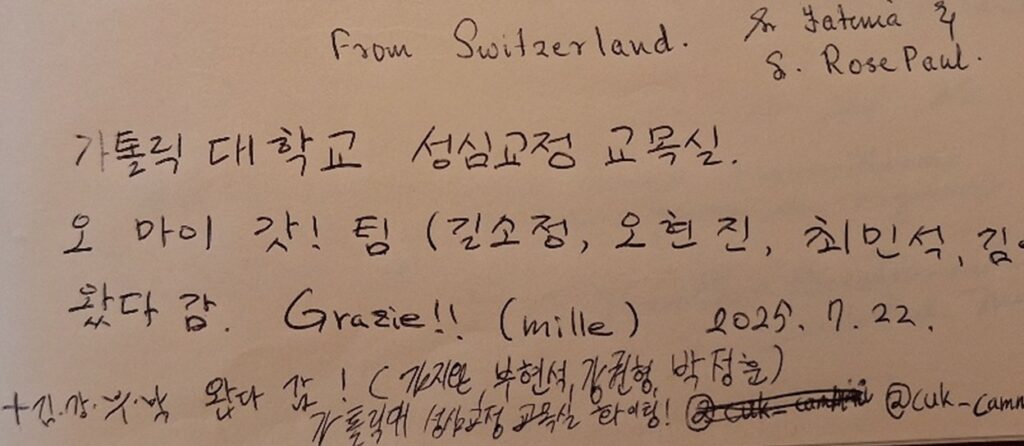 From Switzerland. Sr Fatima &
S. Rose Paul.
가톨릭 대학교 성심교정 교목실.
오 마이 갓! 팀 (길소정, 오현진, 최민석, 김
왔다 감. Grazie!! (mille) 2025. 7. 22.
+김·강·부·박 왔다 감! (김지완, 부현석, 강권형, 박정훈)
가톨릭대 성심교정 교목실 화이팅! @cuk_camm